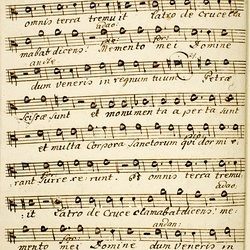 omnis terra tremuit latro de Cruce cla
mabat dicens: Memento mei Domine
dum veneris in regnum tuum Petræ
scissæ sunt et monumenta aperta sunt
et multa Corpora Sanctorum qui dormi e-
rant surrexerunt. Et omnis terra tremu
it latro de Cruce clamabat dicens: me-
mento mei Domine dum veneris in